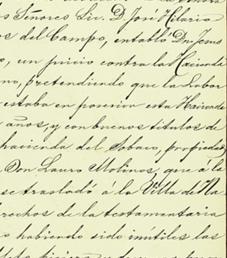 s Señores Lic. D. José Hilario
os del Campo, entabló Dn Jesus
o, un juicio contra la Hacienda
no, pretendiendo que la Labor
estaba en posesion esta Hacienda
años, y con buenos titulos de
hacienda del Tobaco, propiedad
Don Lauro Molinos, que á la
se trasladó á la Villa de Na
rechos de la testamentaria
o habiendo sido inútiles las